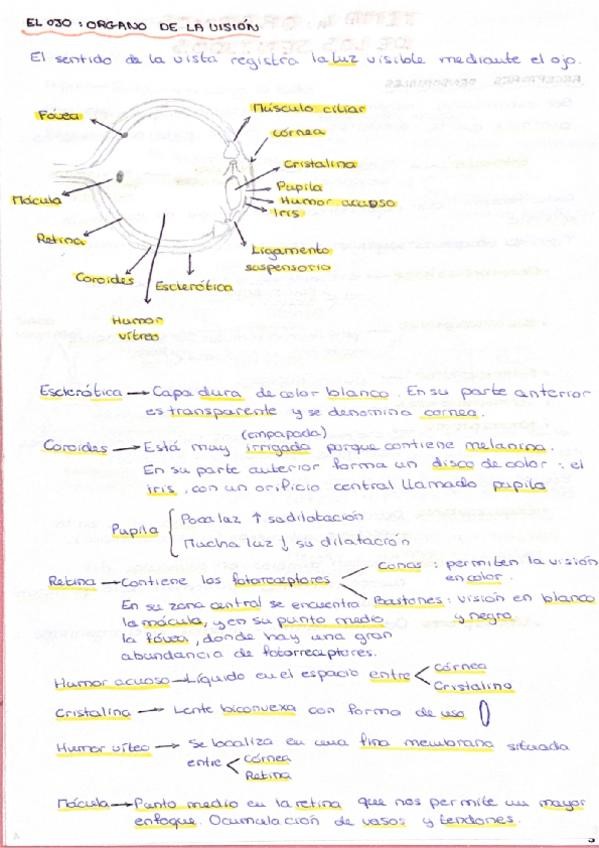 EL OJO: ORGANO DE LA VISIÓN
El sentido de la vista registra la luz visible mediante el ojo.
Fóvea
Músculo ciliar
córnea
Cristalina
Pupila
Humor acuoso
Iris
Mácula
Retina
Ligamento
suspensorio
Coroides
Esclerótica
Humor
vítreo
Esclerótica → Capa dura de color blanco. En su parte anterior
es transparente y se denomina cornea.
(empapada)
Coroides → Está muy irrigada porque contiene melanina.
En su parte auterior forma un disco de color : el
iris, con un orificio central llamado pupila
Pupila { Poca luz ↑ su dilatación
Mucha luz ↓ su dilatación
Retina → Contiene los fotorreceptores
Conos : permiten la visión
en color.
Bastones : visión en blanco
y negro
En su zona central se encuentra
la mácula, y en su punto medio
la fóvea, donde hay una gran
abundancia de fotorreceptores.
Humor acuoso → Líquido en el espacio entre < Córnea
Cristalino
Cristalina → Lente biconvexa con forma de uso
Humor víteo → Se localiza en una fina membrana situada
entre < Córnea
Retina
Mácula → Punto medio en la retina que nos permite un mayor
enfoque. Ocumulación de vasos y tendones.